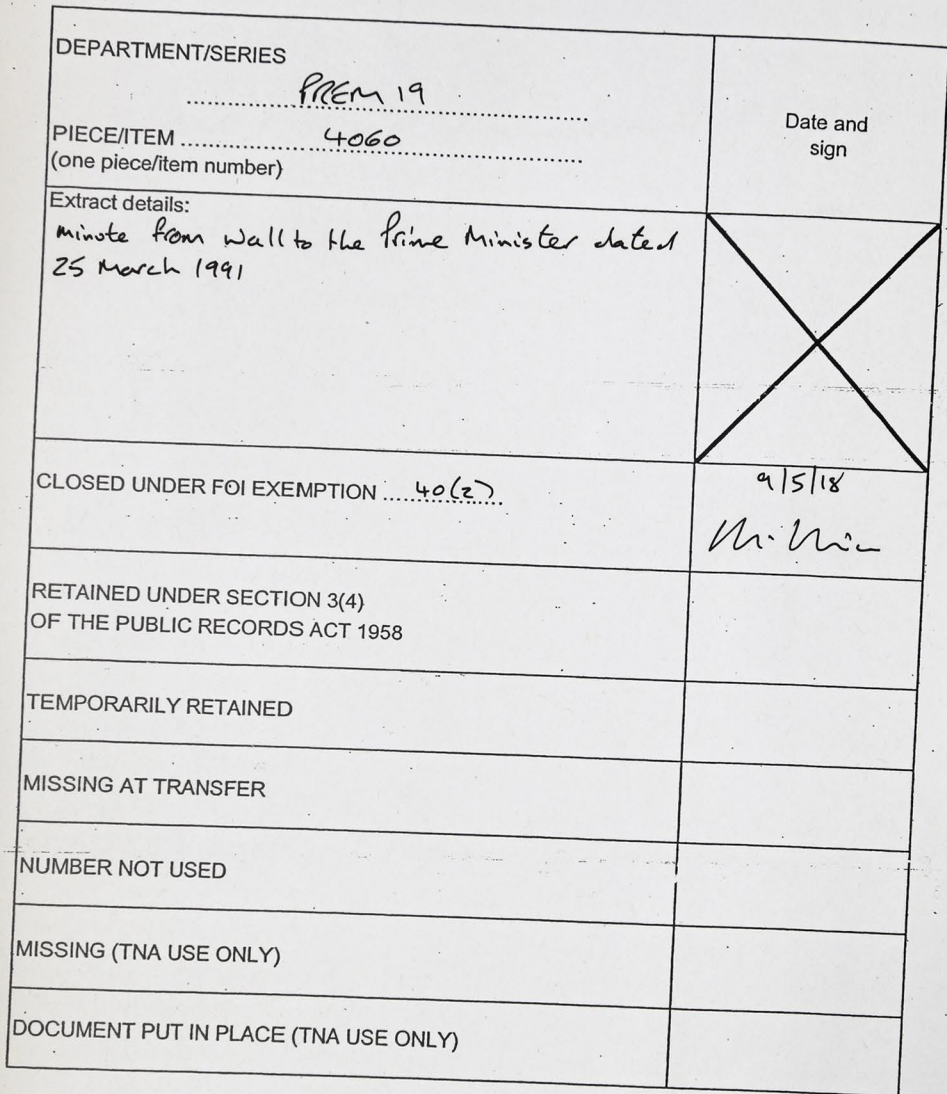 DEPARTMENT/SERIES
PREM 19
Date and
sign
PIECE/ITEM 4060
(one piece/item number)
Extract details:
minute from Wall to the Prime Minister dated
25 March 1991
CLOSED UNDER FOI EXEMPTION 40(2)
9/5/18
RETAINED UNDER SECTION 3(4)
OF THE PUBLIC RECORDS ACT 1958
TEMPORARILY RETAINED
MISSING AT TRANSFER
NUMBER NOT USED
MISSING (TNA USE ONLY)
DOCUMENT PUT IN PLACE (TNA USE ONLY)